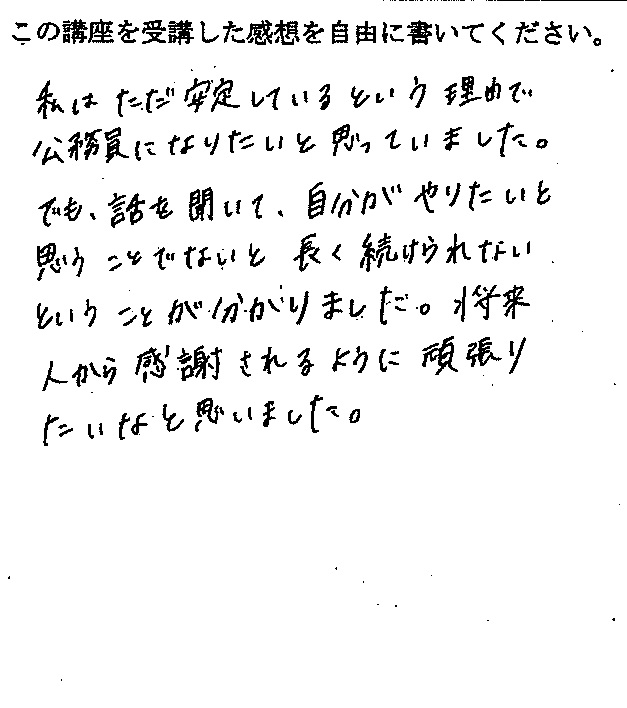 この講座を受講した感想を自由に書いてください。
私はただ安定しているという理由で
公務員になりたいと思っていました。
でも、話を聞いて、自分がやりたいと
思うことでないと長く続けられない
ということが分かりました。将来
人から感謝されるように頑張り
たいなと思いました。